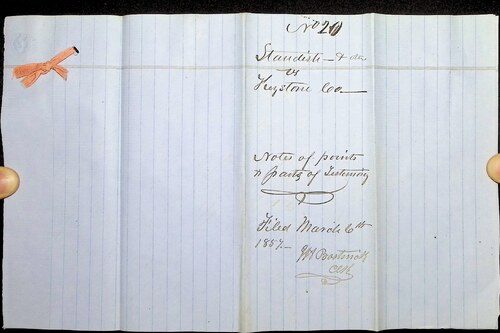 No 20
Standish & als
vs
Keystone Co
Notes of points
& parts of Testimony
Filed March 6th
1857
Clk